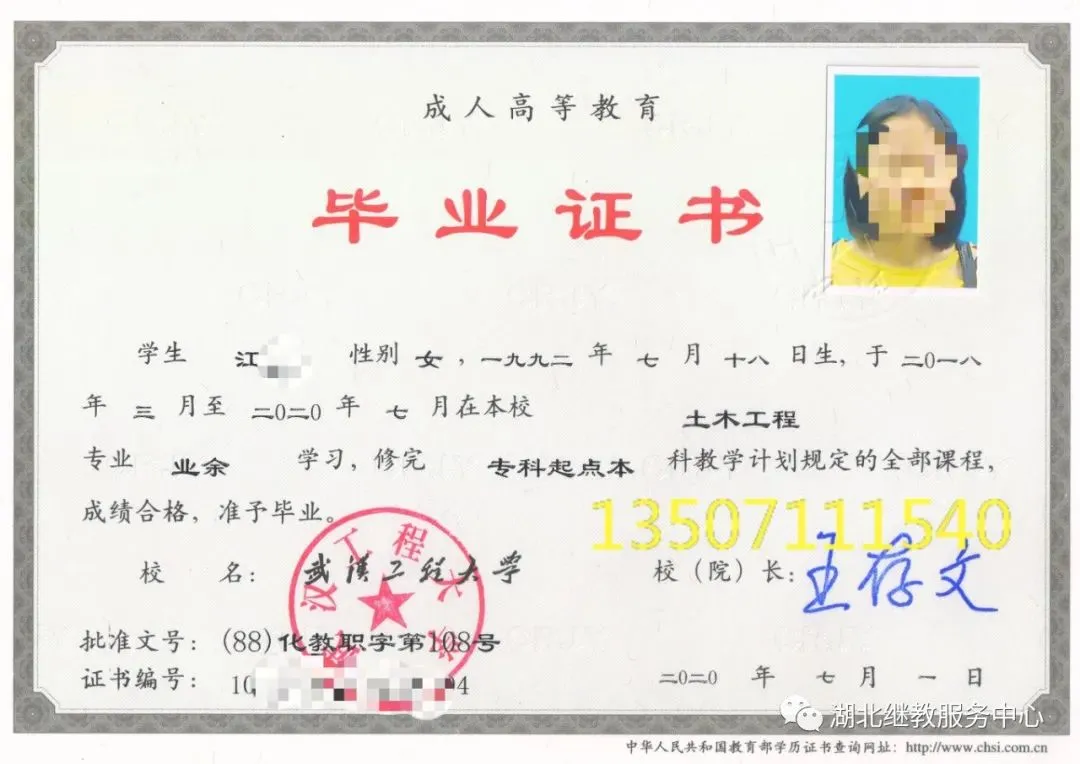 成人高等教育
毕业证书
学生 江 性别 女，一九九二 年 七 月 十八 日生，于 二〇一八
年 三 月至 二〇二〇 年 七 月在本校 土木工程
专业 业余 学习，修完 专科起点本 科教学计划规定的全部课程，
成绩合格，准予毕业。
13507111540
校 名：武汉工程大学 校（院）长：王存文
武汉工程大学
批准文号：(88)化教职字第108号
证书编号：10 4
二〇二〇 年 七 月 一 日
湖北继教服务中心
中华人民共和国教育部学历证书查询网址：http://www.chsi.com.cn